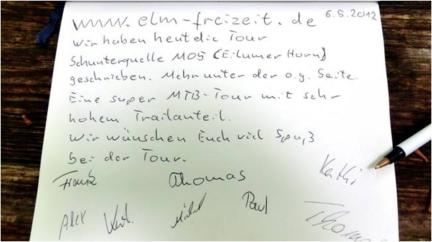 www.elm-freizeit.de 6.5.2012
Wir haben heut die Tour
Schunterquelle MO5 (Eilumer Horn)
geschrieben. Mehr unter der o.g. Seite.
Eine super MTB-Tour mit sehr
hohem Trailanteil.
Wir wünschen Euch viel Spaß
bei der Tour.
Frank Thomas Kathi
Alex Michel Paul Thomas